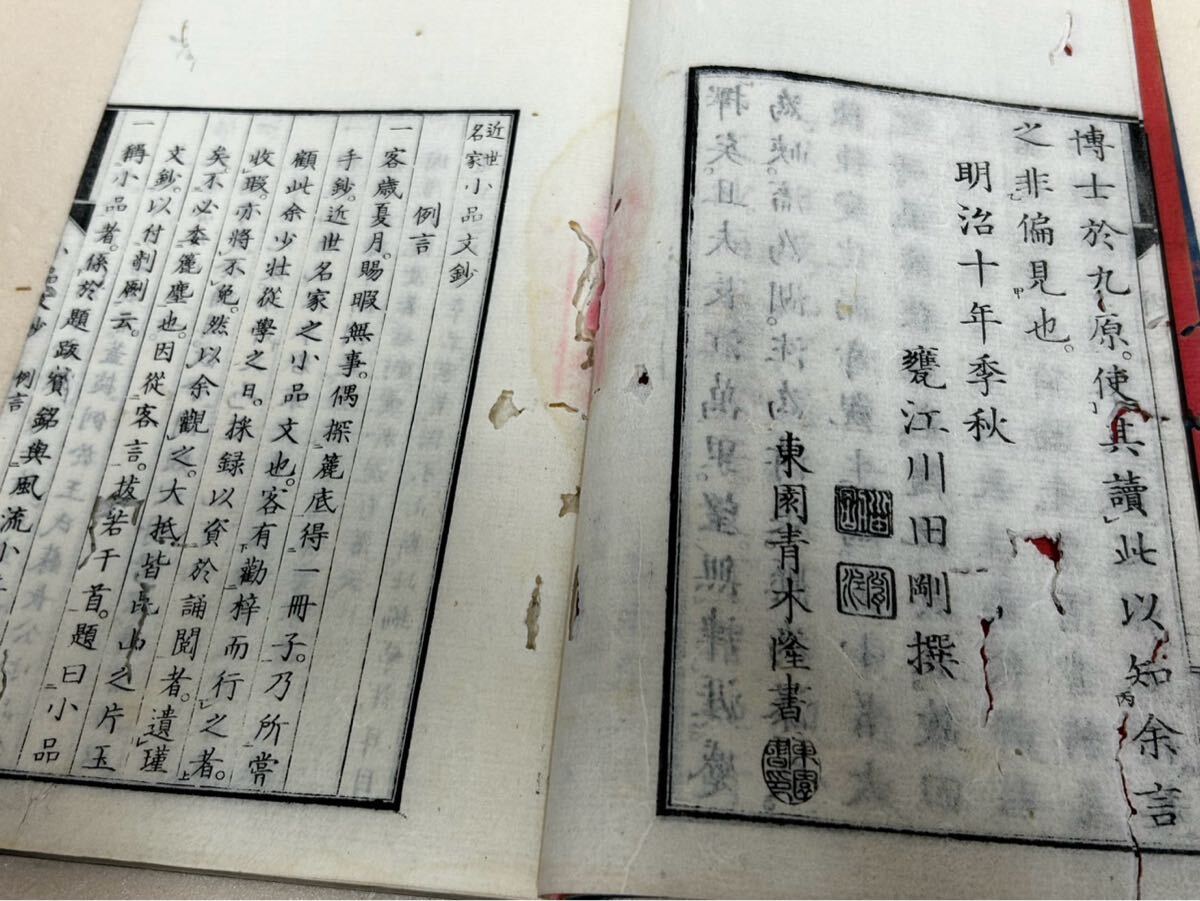 博士於九原。使其讀此以知丙余言
之非偏見甲也。
明治十年季秋
甕江川田剛撰
東園青木隆書
近世名家小品文鈔
例言
一客歳夏月。賜暇無事。偶探簏底得一冊子。乃所嘗
手鈔。近世名家之小品文也。客有勸梓而行之者。
顧此余少壯從學之日。採録以資於誦閲者。遺瑾上
收瑕。亦將不免。然以余觀之。大抵皆昆山之片玉
矣。不必委簏塵也。因從客言。抜若干首。題曰小品
文鈔。以付剞劂云。
一稱小品者。係於題跋贊銘與風流小
小品文鈔 例言